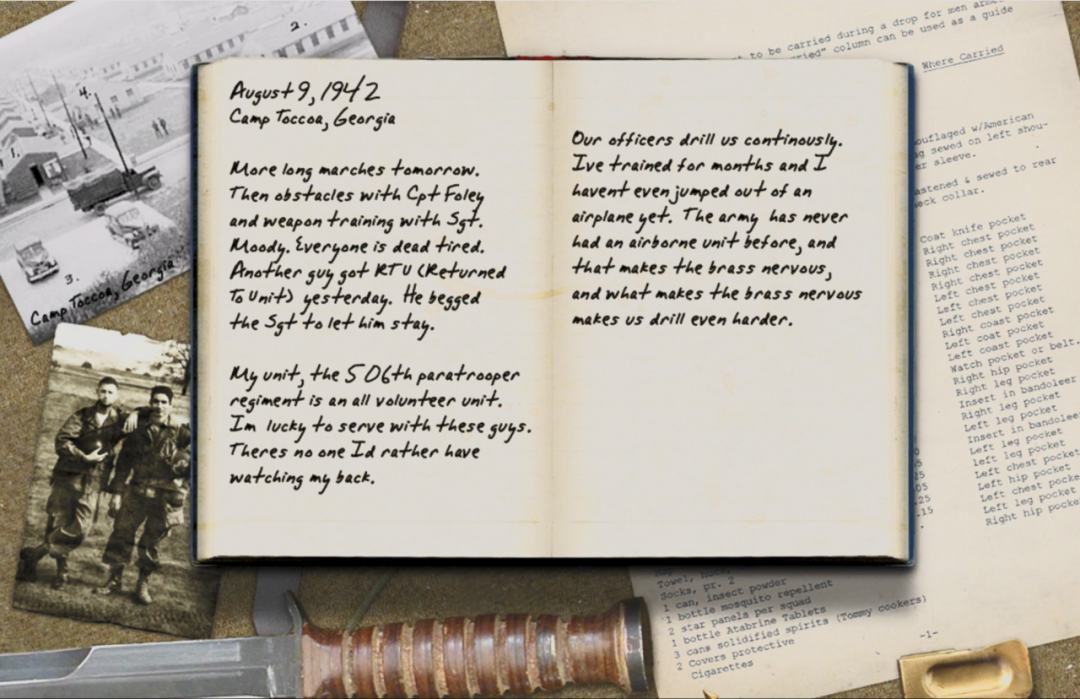 2.
4.
1.
3.
Camp Toccoa, Georgia
August 9, 1942
Camp Toccoa, Georgia
More long marches tomorrow.
Then obstacles with Cpt Foley
and weapon training with Sgt.
Moody. Everyone is dead tired.
Another guy got RTU (Returned
To Unit) yesterday. He begged
the Sgt to let him stay.
My unit, the 506th paratrooper
regiment is an all volunteer unit.
Im lucky to serve with these guys.
Theres no one Id rather have
watching my back.
Our officers drill us continously.
Ive trained for months and I
havent even jumped out of an
airplane yet. The army has never
had an airborne unit before, and
that makes the brass nervous,
and what makes the brass nervous
makes us drill even harder.
to be carried during a drop for men
column can be used as a guide
Where Carried
ouflaged w/American
sewed on left shou-
er sleeve.
astened & sewed to rear
eck collar.
Coat knife pocket
Right chest pocket
Right chest pocket
Right chest pocket
Left chest pocket
Left chest pocket
Left chest pocket
Right coast pocket
Left coat pocket
Left coast pocket
Watch pocket or belt.
Right hip pocket
Right leg pocket
Insert in bandoleer
Right leg pocket
Left leg pocket
Insert in bandoleer
Left leg pocket
left leg pocket
Left chest pocket
Left hip pocket
Left chest pocke
Left leg pocket
Right hip pocket
.25
.15
Towel,
Socks, pr. 2
1 can, insect powder
1 bottle mosquito repellent
2 star panels per squad
1 bottle Atabrine Tablets
3 cans solidified spirits (Tommy cookers)
2 Covers protective
Cigarettes
-1-